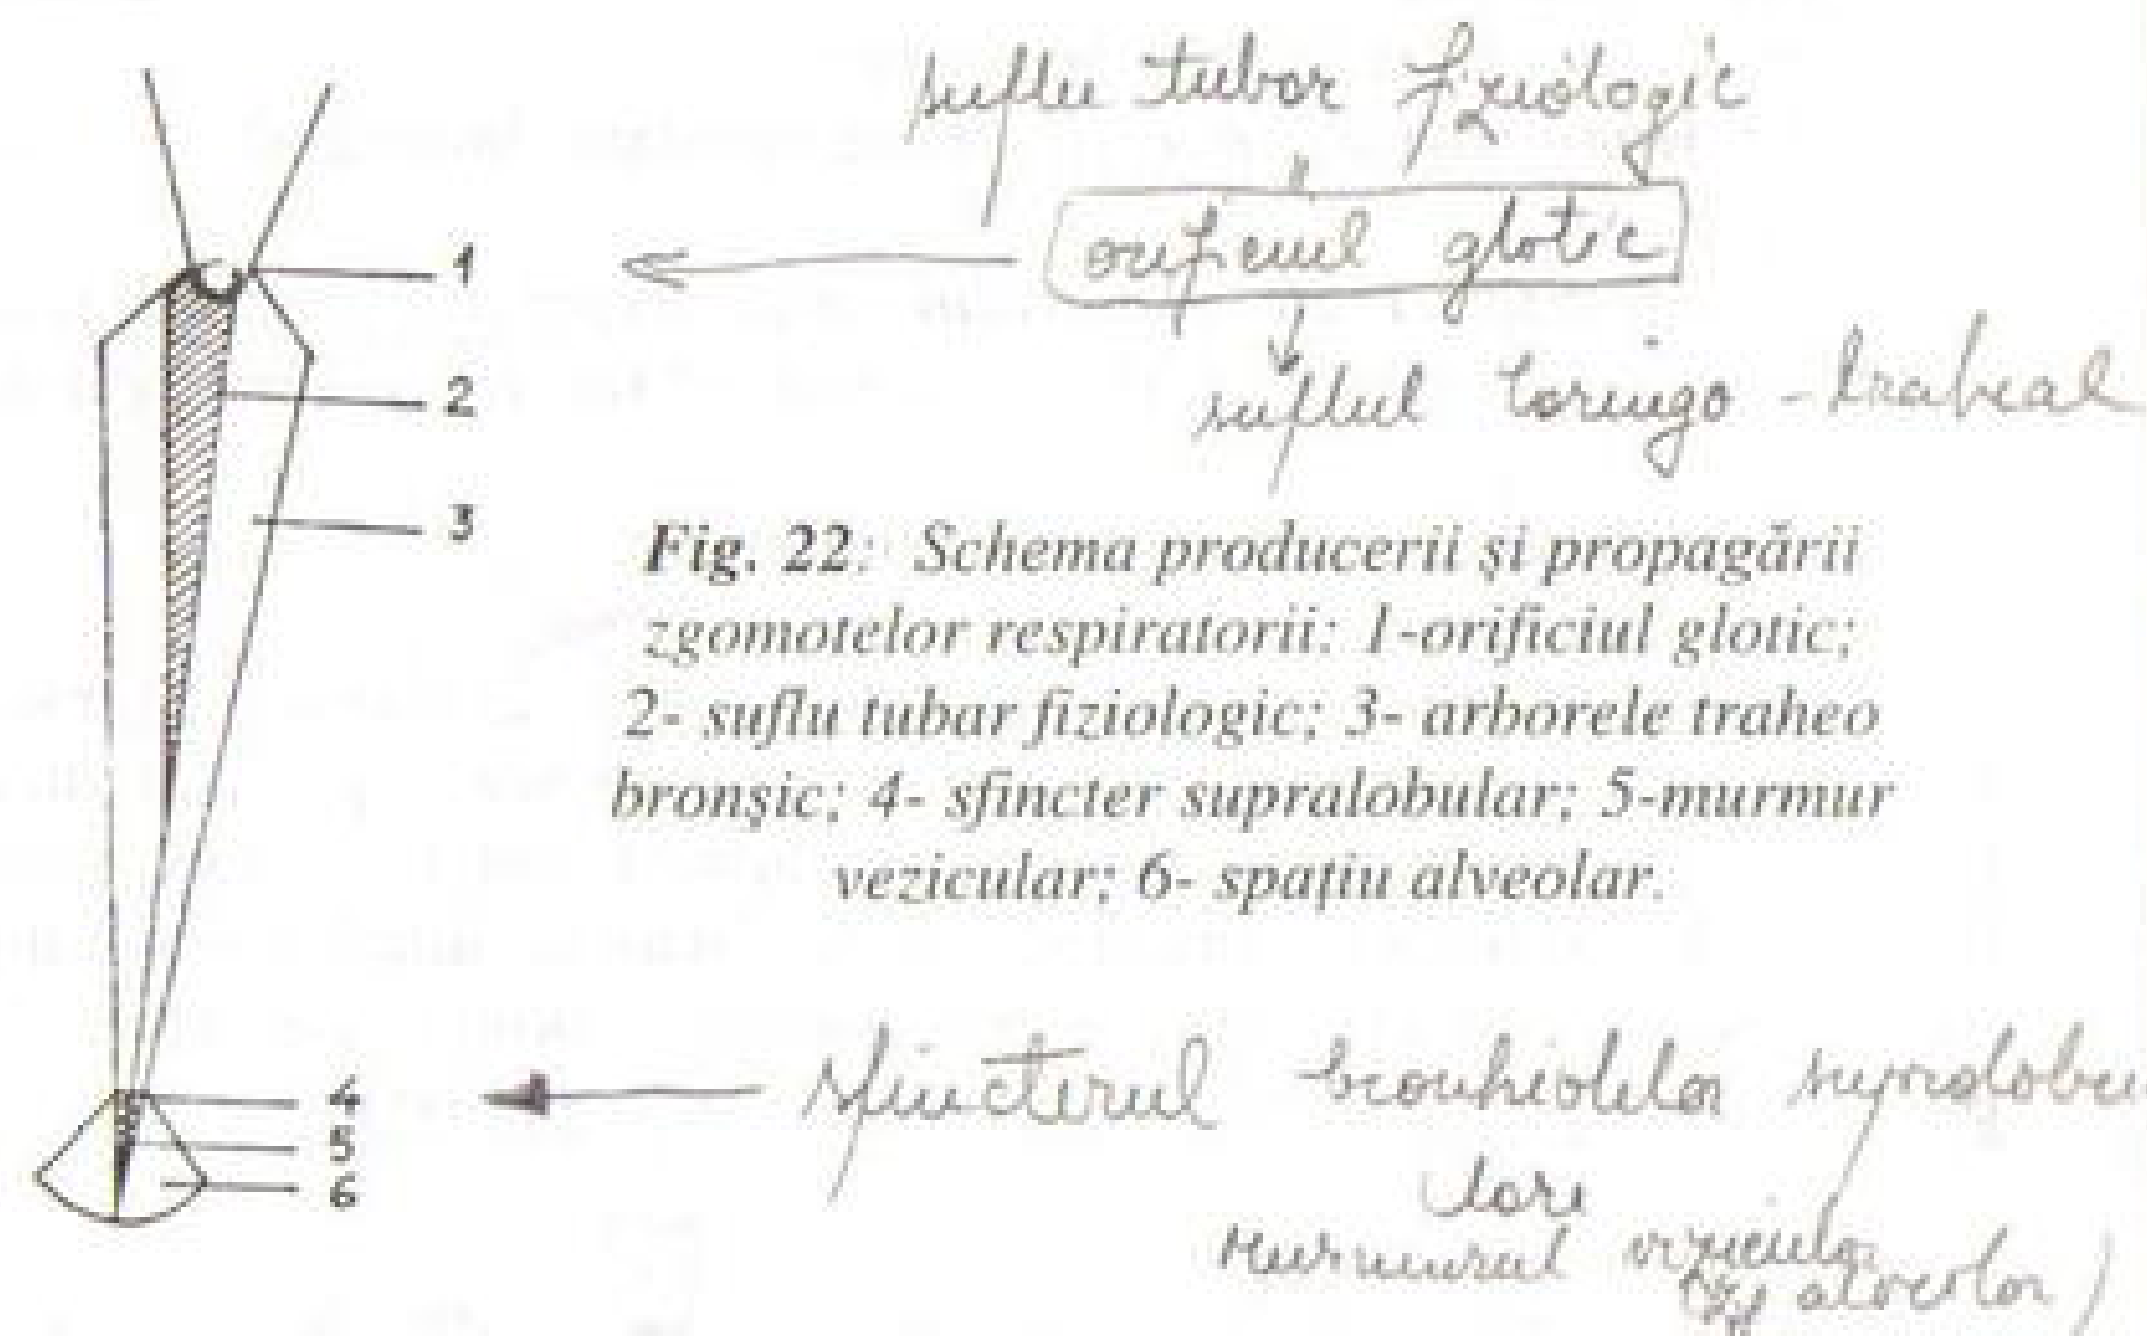 suflu tubar fiziologic
orificiul glotic
suflul laringo-traheal
1
2
3
Fig. 22: Schema producerii și propagării
zgomotelor respiratorii: 1-orificiul glotic;
2- suflu tubar fiziologic; 3- arborele traheo
bronșic; 4- sfincter supralobular; 5-murmur
vezicular; 6- spațiu alveolar.
4
5
6
sfincterul bronhiolelor
lare
murmurul vezicular
alveolar)